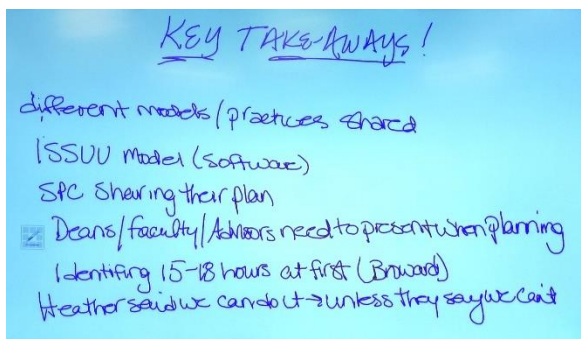 KEY TAKE-AWAYS!
different models/practices shared
ISSUU Model (Software)
SPC Sharing their plan
Deans/faculty/Advisors need to present when planning
Identifing 15-18 hours at first (Broward)
Heather said we can do it → unless they say we can't